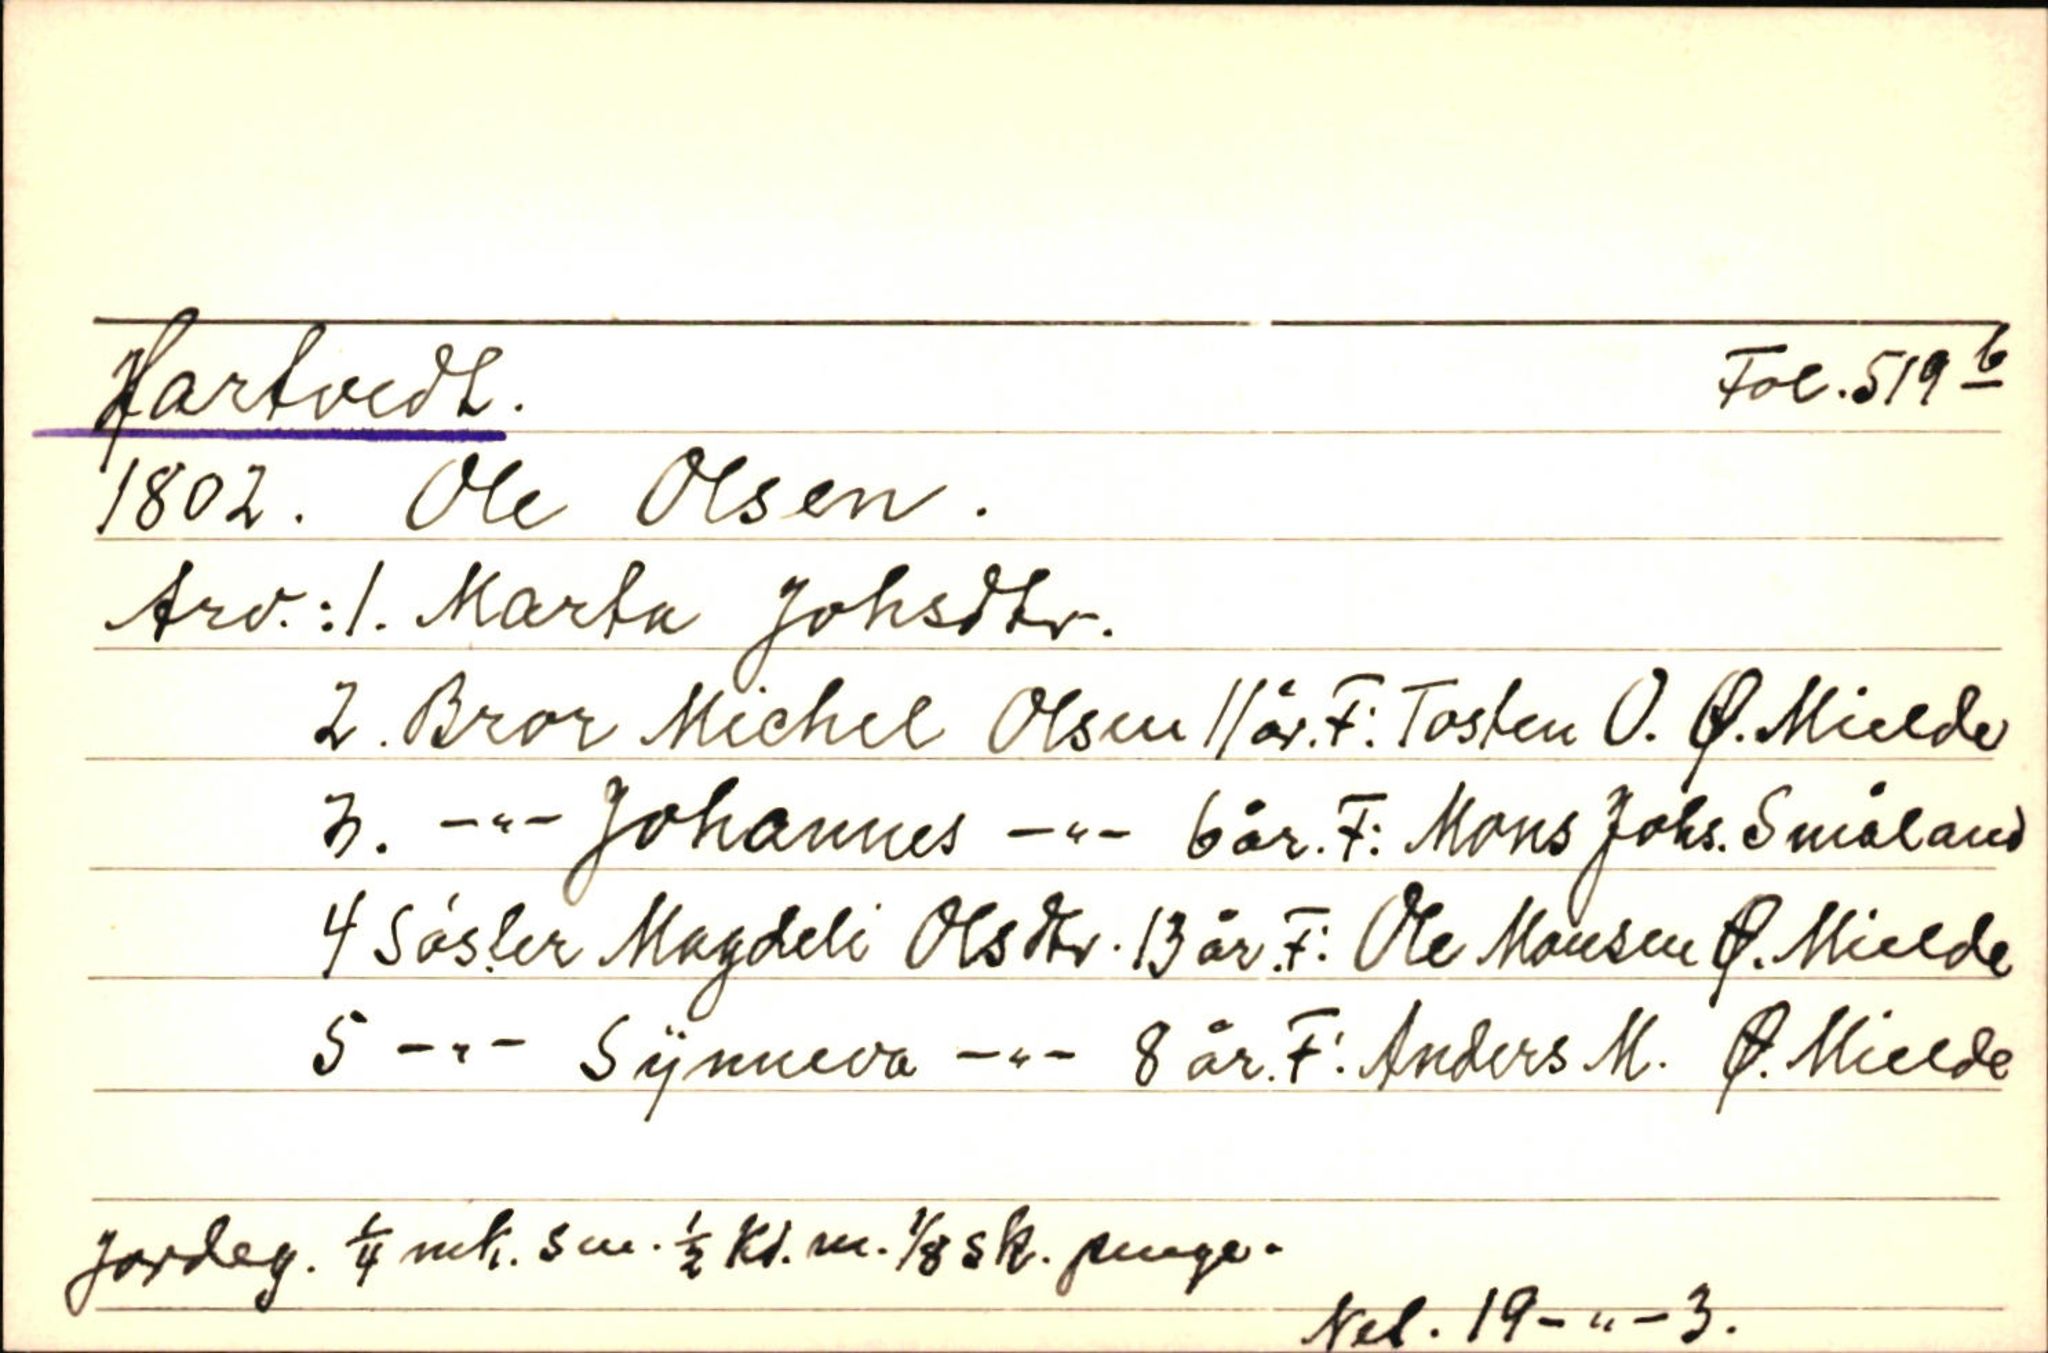 Hartvedt. Fol. 519 b
1802. Ole Olsen.
Arv.: 1. Marta Johsdtr.
2. Bror Michel Olsen 11 år. F: Tosten O. Ø. Mielde
3. -"- Johannes -"- 6 år. F: Mons Johs. Småland
4 Söster Magdeli Olsdtr. 13 år. F: Ole Monsen Ø. Mielde
5 -"- Synneva -"- 8 år. F: Anders M. Ø. Mielde
Jordeg. 1/4 mk. sm. 1/2 Kl. m. 1/8 sk. penge.
Nel. 19-"-3.